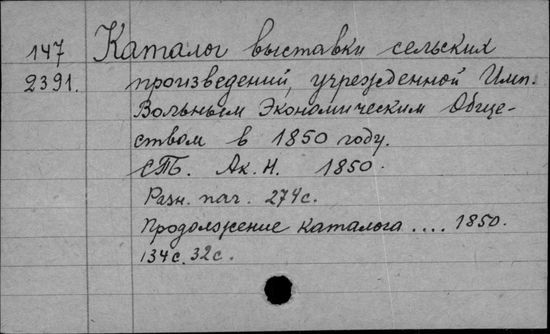 147 Каталог выставки сельских
2391. произведений, учрежденной Имп.
Вольным Экономическим Обще-
ством в 1850 году.
СПб. Ак. Н. 1850.
Разн. паг. 274 с.
Продолжение каталога .... 1850.
134 с. 32 с.